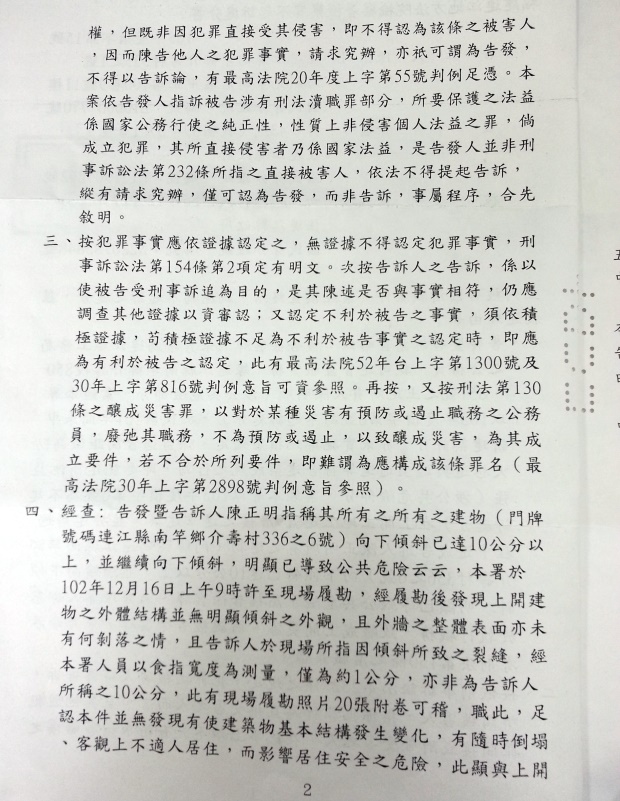 權，但既非因犯罪直接受其侵害，即不得認為該條之被害人
，因而陳告他人之犯罪事實，請求究辦，亦祇可謂為告發，
不得以告訴論，有最高法院20年度上字第55號判例足憑。本
案依告發人指訴被告涉有刑法瀆職罪部分，所要保護之法益
係國家公務行使之純正性，性質上非侵害個人法益之罪，倘
成立犯罪，其所直接侵害者乃係國家法益，是告發人並非刑
事訴訟法第232條所指之直接被害人，依法不得提起告訴，
縱有請求究辦，僅可認為告發，而非告訴，事屬程序，合先
敘明。
三、按犯罪事實應依證據認定之，無證據不得認定犯罪事實，刑
事訴訟法第154條第2項定有明文。次按告訴人之告訴，係以
使被告受刑事訴追為目的，是其陳述是否與事實相符，仍應
調查其他證據以資審認；又認定不利於被告之事實，須依積
極證據，苟積極證據不足為不利於被告事實之認定時，即應
為有利於被告之認定，此有最高法院52年台上字第1300號及
30年上字第816號判例意旨可資參照。再按，又按刑法第130
條之釀成災害罪，以對於某種災害有預防或遏止職務之公務
員，廢弛其職務，不為預防或遏止，以致釀成災害，為其成
立要件，若不合於所列要件，即難謂為應構成該條罪名（最
高法院30年上字第2898號判例意旨參照）。
四、經查：告發暨告訴人陳正明指稱其所有之所有之建物（門牌
號碼連江縣南竿鄉介壽村336之6號）向下傾斜已達10公分以
上，並繼續向下傾斜，明顯已導致公共危險云云，本署於
102年12月16日上午9時許至現場履勘，經履勘後發現上開建
物之外體結構並無明顯傾斜之外觀，且外牆之整體表面亦未
有何剝落之情，且告訴人於現場所指因傾斜所致之裂縫，經
本署人員以食指寬度為測量，僅為約1公分，亦非為告訴人
所稱之10公分，此有現場履勘照片20張附卷可稽，職此，足
認本件並無發現有使建築物基本結構發生變化，有隨時倒塌
、客觀上不適人居住，而影響居住安全之危險，此顯與上開
2